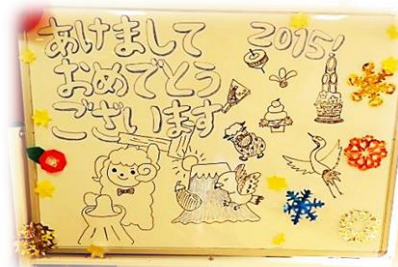 あけまして
2015!
おめでとう
ございます